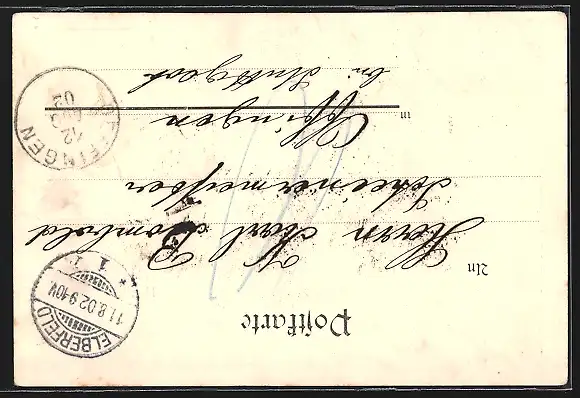 Postkarte
An
Herrn Karl Rombold
Schreinermeister
in Öffingen
bei Stuttgart
ELBERFELD
11.8.02.9-10V.
* 1
OEFFINGEN
12
AUG
02